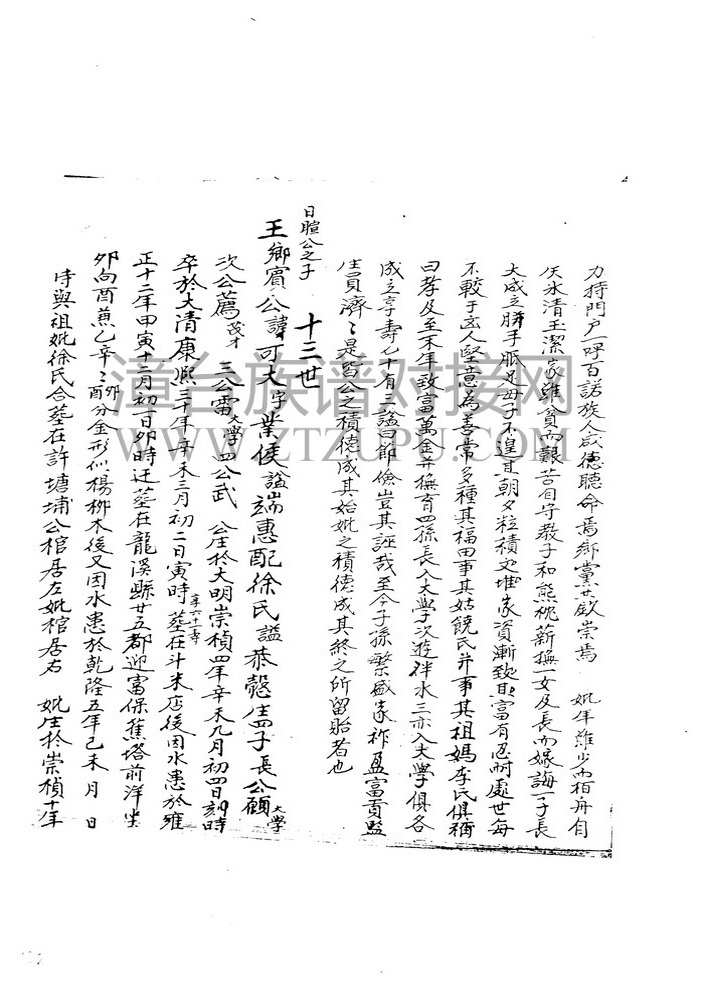 力持門户一呼百諾族人咸德聽命焉鄉黨共欽崇焉 妣年雖少而栢舟自
矢氷清玉潔家雖貧而艱苦自守教子和熊枕薪撫一女及長而嫁誨一子長
大成立胼手胝足母子不遑其朝夕粒積 堆家資漸致 富有忍耐處世每
不較于 人堅意為善常多種其福田事其姑饒氏并事其祖媽李氏俱稱
曰孝及至末年致富萬金并撫育四孫長入大學次遊泮水三亦入大學俱各
成立享壽七十有三謚曰節儉豈其誣哉至今子孫繁盛家祚盈富貢監
生員濟濟是 公之積德成其始妣之積德成其終之所留貽者也
十三世
日暄公之子
王鄉賓公諱可大字業侯謚端惠配徐氏謚恭慤生四子長公顧大學
次公薦茂才 三公雷大學四公武 公生於大明崇禎四年辛未九月初四日刻時
卒於大清康熙三十年辛未三月初二日寅時享六十一壽葬在斗米店後因水患於雍
正十二年甲寅十二月初一日卯時迁葬在龍溪縣廿五都迎富保蕉塔前洋坐
卯向酉兼乙辛辛卯辛酉分金形似楊柳木後又因水患於乾隆五年己未 月 日
時與祖妣徐氏合葬在許塘埔公棺居左妣棺居右 妣生於崇禎十年
ZTZUPU.COM
WWW.ZTZUPU.COM
漳台族谱对接网